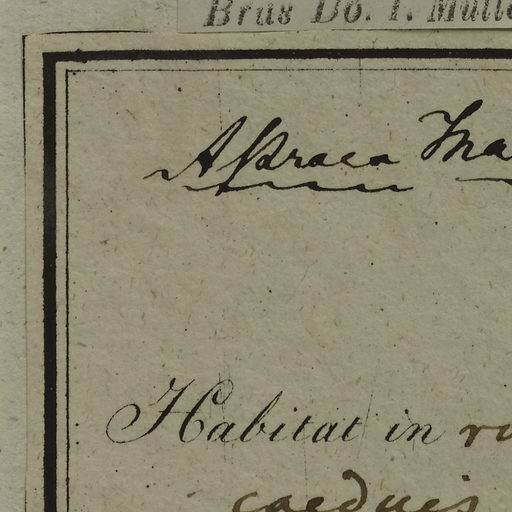 Bras Do. 1. Mull
Astraea Ma
Habitat in ru
caeduis